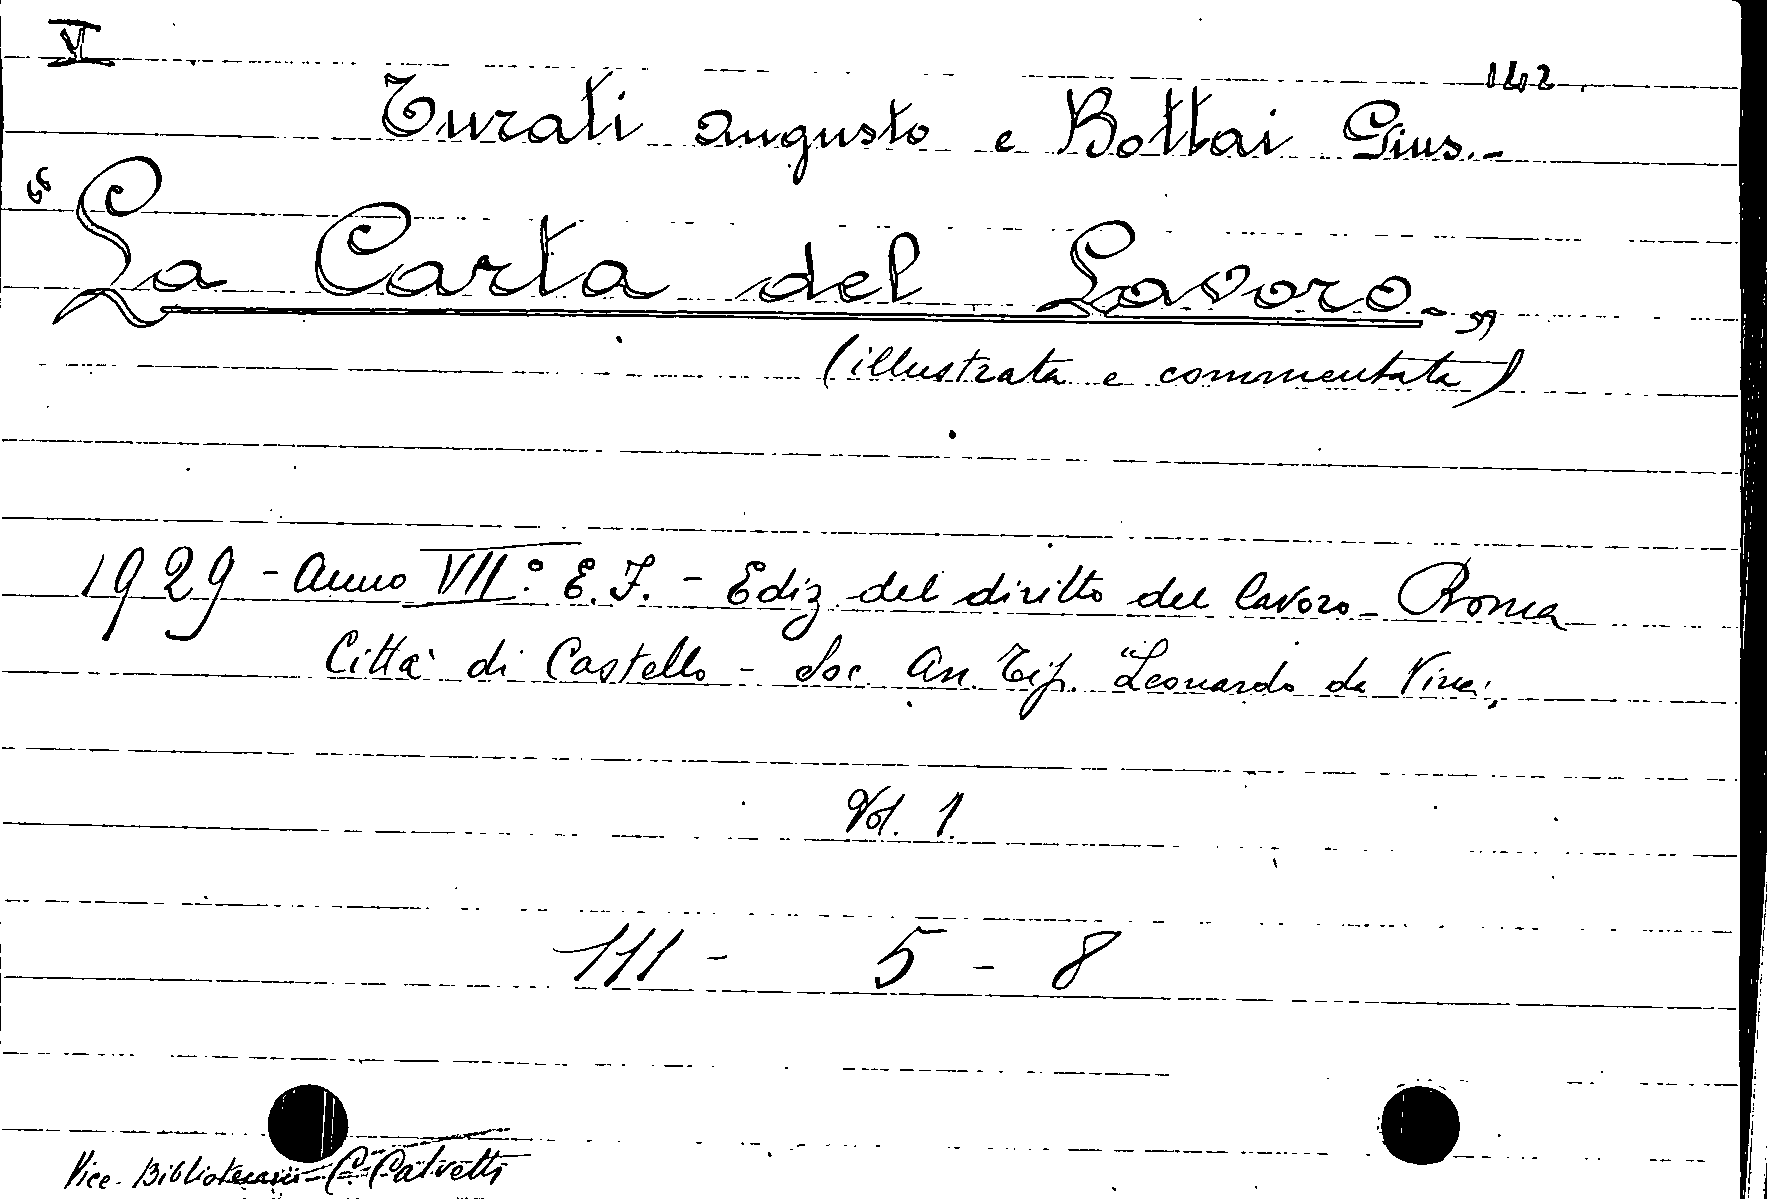 VI
142
Turati Augusto e Bottai Gius.-
"La Carta del Lavoro.-"
(illustrata e commentata)
1929 - Anno VII.° E. F. - Ediz. del diritto del lavoro - Roma
Città di Castello - Soc. An. Tip. "Leonardo da Vinci"
Vol. 1.
111 - 5 - 8
Vice-Bibliotecario C. Calvetti